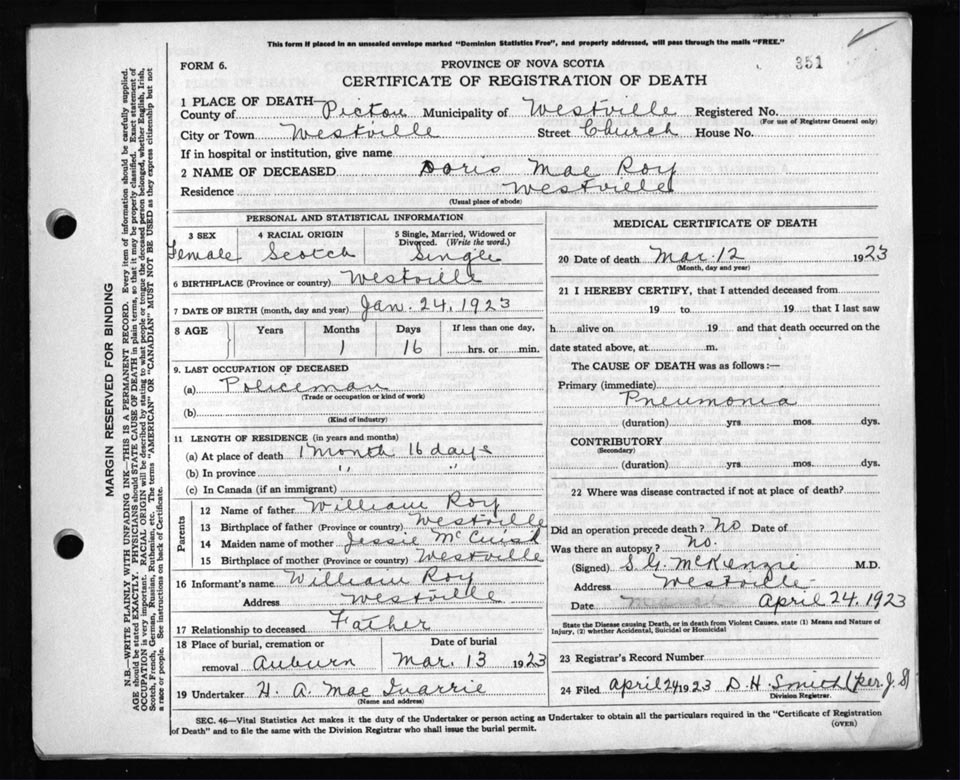 This form if placed in an unsealed envelope marked "Dominion Statistics Free", and properly addressed, will pass through the mails "FREE."
FORM 6.
PROVINCE OF NOVA SCOTIA
351
CERTIFICATE OF REGISTRATION OF DEATH
1 PLACE OF DEATH—
County of Pictou Municipality of Westville Registered No.
(For use of Registrar General only)
City or Town Westville Street Church House No.
If in hospital or institution, give name
2 NAME OF DECEASED Doris Mae Roy
Residence Westville
(Usual place of abode)
PERSONAL AND STATISTICAL INFORMATION
3 SEX 4 RACIAL ORIGIN 5 Single, Married, Widowed or Divorced. (Write the word.)
Female Scotch Single
6 BIRTHPLACE (Province or country) Westville
7 DATE OF BIRTH (month, day and year) Jan. 24, 1923
8 AGE Years Months Days If less than one day,
1 16 hrs. or min.
9. LAST OCCUPATION OF DECEASED
(a) Policeman
(Trade or occupation or kind of work)
(b)
(Kind of industry)
11 LENGTH OF RESIDENCE (in years and months)
(a) At place of death 1 month 16 days
(b) In province " "
(c) In Canada (if an immigrant)
Parents
12 Name of father William Roy
13 Birthplace of father (Province or country) Westville
14 Maiden name of mother Jessie McCuish
15 Birthplace of mother (Province or country) Westville
16 Informant's name William Roy
Address Westville
17 Relationship to deceased Father
18 Place of burial, cremation or removal Auburn
Date of burial Mar. 13 1923
19 Undertaker H. A. MacQuarrie
(Name and address)
MEDICAL CERTIFICATE OF DEATH
20 Date of death Mar. 12 1923
(Month, day and year)
21 I HEREBY CERTIFY, that I attended deceased from
19 to 19 that I last saw
h alive on 19 and that death occurred on the
date stated above, at m.
The CAUSE OF DEATH was as follows:—
Primary (immediate)
Pneumonia
(duration) yrs mos. dys.
CONTRIBUTORY
(Secondary)
(duration) yrs. mos. dys.
22 Where was disease contracted if not at place of death?
Did an operation precede death? No Date of
Was there an autopsy? No.
(Signed) S. G. McKenzie M.D.
Address Westville
Date March April 24, 1923
State the Disease causing Death, or in death from Violent Causes, state (1) Means and Nature of
Injury, (2) whether Accidental, Suicidal or Homicidal
23 Registrar's Record Number
24 Filed April 24 1923 D. H. Smith (per J. S)
Division Registrar.
SEC. 46—Vital Statistics Act makes it the duty of the Undertaker or person acting as Undertaker to obtain all the particulars required in the "Certificate of Registration
of Death" and to file the same with the Division Registrar who shall issue the burial permit.
(OVER)
MARGIN RESERVED FOR BINDING
N.B.—WRITE PLAINLY WITH UNFADING INK—THIS IS A PERMANENT RECORD. Every item of information should be carefully supplied.
AGE should be stated EXACTLY. PHYSICIANS should STATE CAUSE OF DEATH in plain terms, so that it may be properly classified. Exact statement of
OCCUPATION is very important. RACIAL ORIGIN will be described by stating to what people or tongue the deceased person belonged, whether English, Irish,
Scotch, French, German, Russian, Ruthenian, etc. The terms "AMERICAN" OR "CANADIAN" MUST NOT BE USED as they express citizenship but not
a race or people. See instructions on back of Certificate.